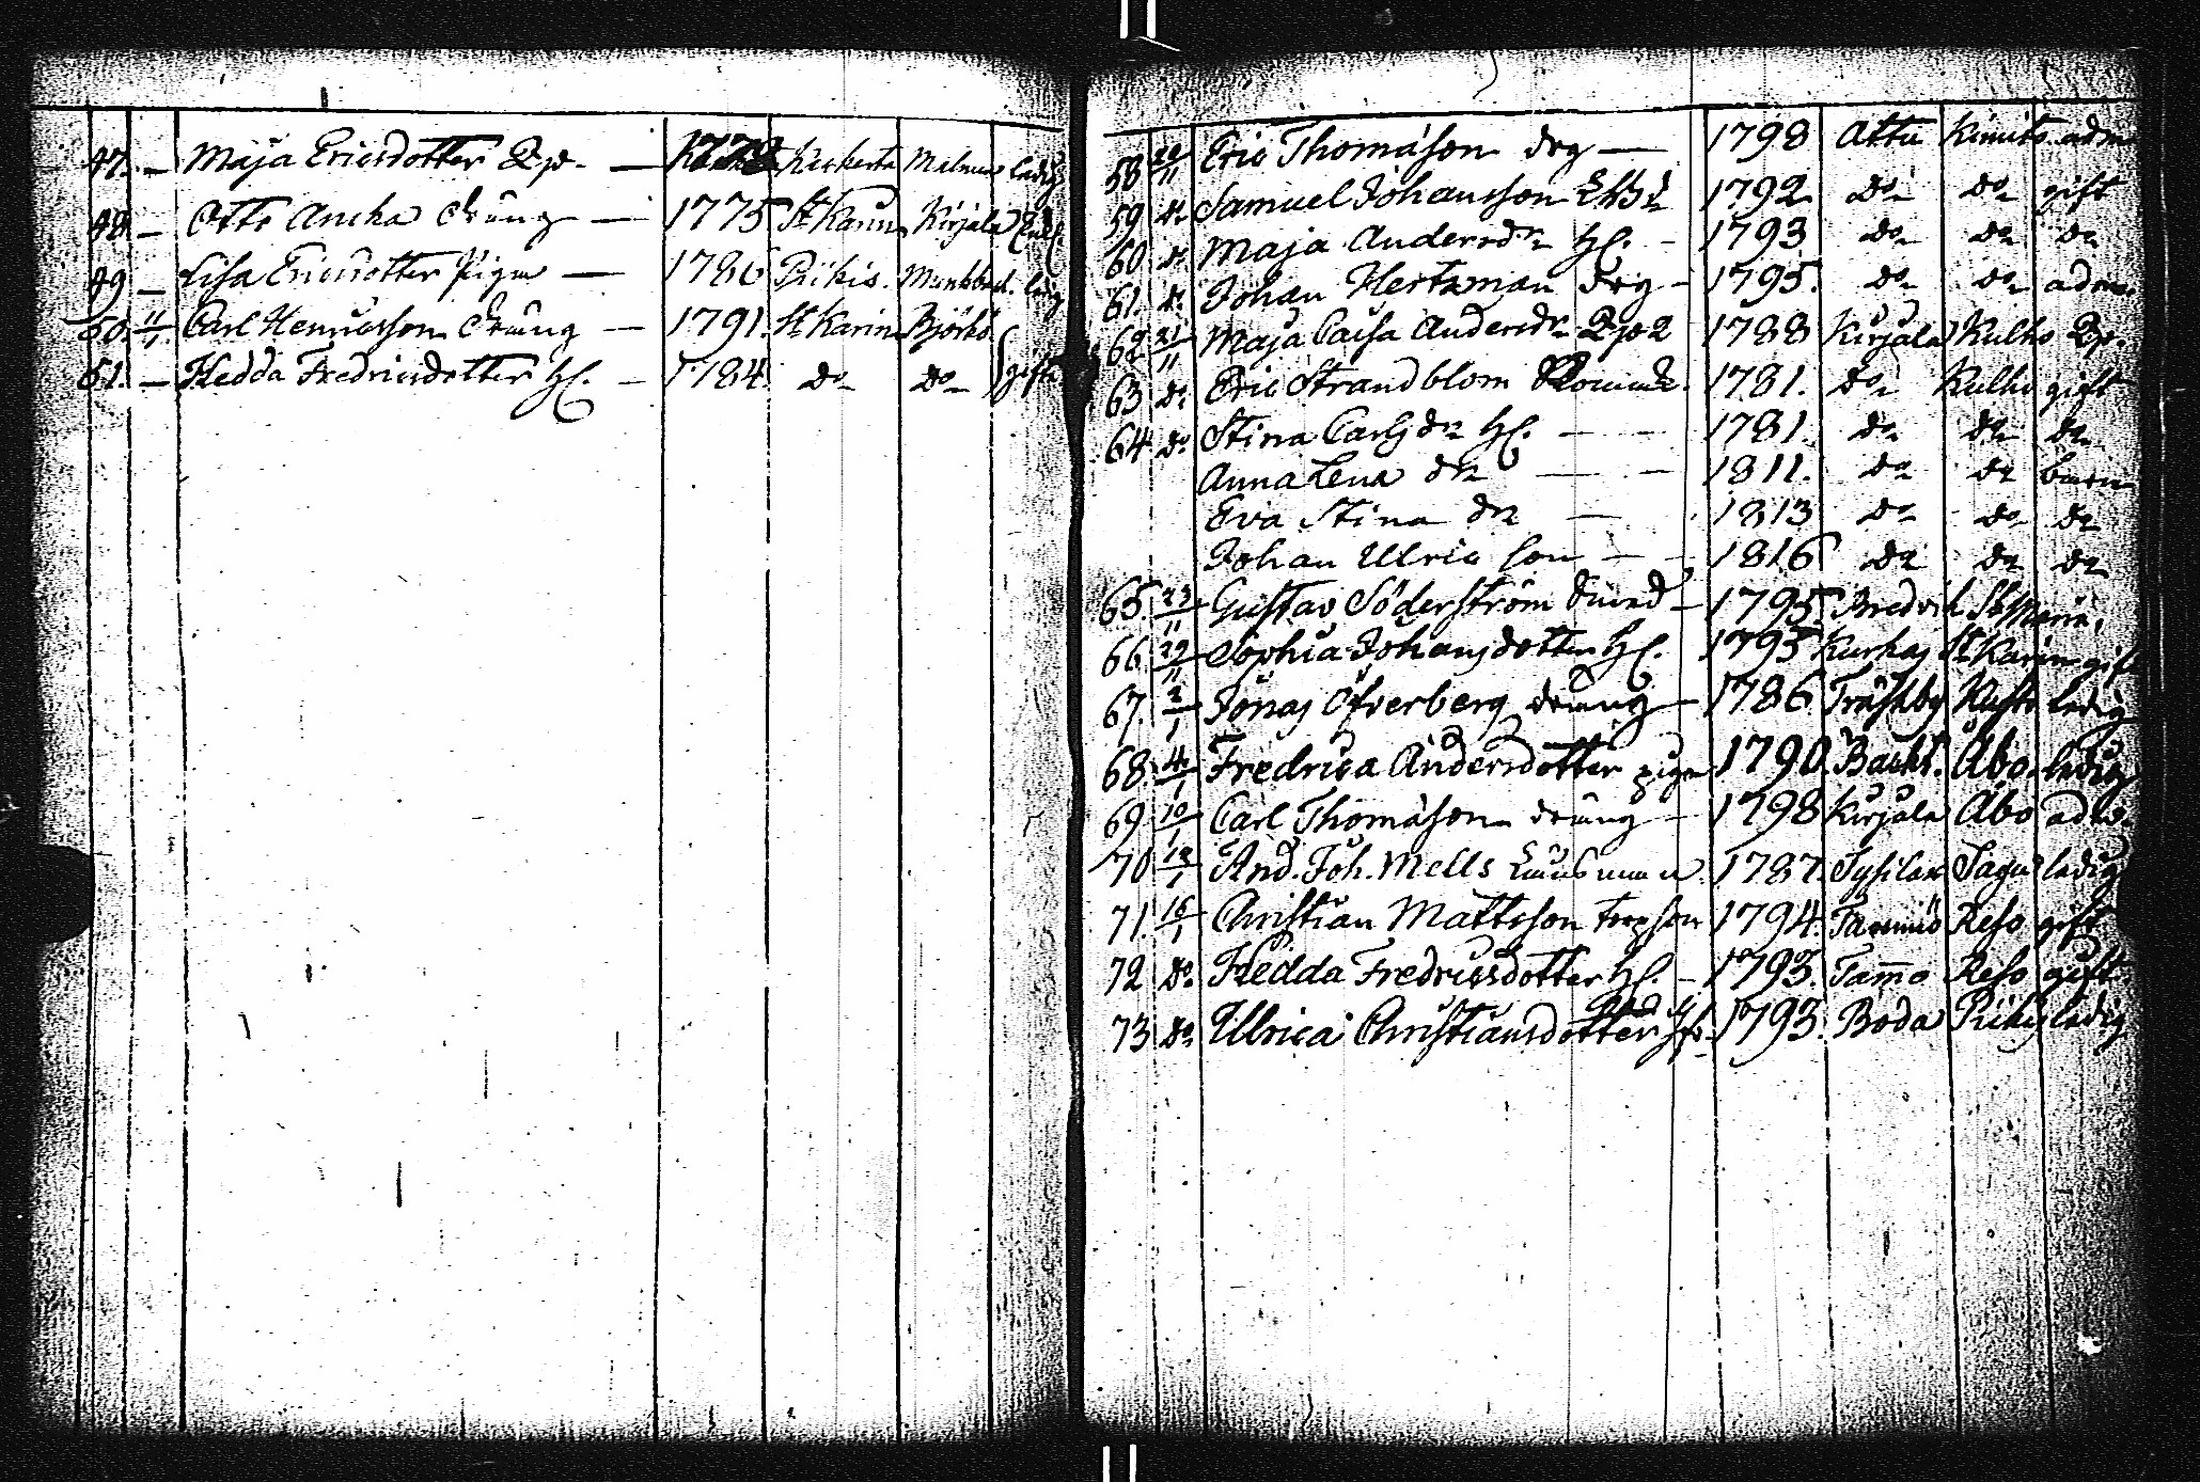 47. — Maja Ericsdotter Qp. — 1772 Malmen ledig
48 — Otto Ancka dräng — 1775 St Karins Kirjala
49 — Lisa Ericsdotter Piga — 1786 Pikis. ledig
50. 11/1 Carl Henricsson dräng — 1791. St Karins Björkö
51. — Hedda Fredricsdotter H. — 1784. do do gifta
58 20/11 Eric Thomasson drg — 1798 Attu Kimito adm
59 do Samuel Johansson 1792 do do gift
60 do Maja Andersdr H. — 1793 do do do
61. do Johan Hertzman drg — 1795. do do adm.
62 21/11 Maja Caisa Andersdr 1788 Kirjala Kulho Qp.
63 do Eric Strandblom 1781. do Kulho gift
64 do Stina Carlsdr H. — — 1781. do do do
Anna Lena dr — — 1811. do do barn
Eva Stina dr — 1813 do do do
Johan Ulric son — — 1816 do do do
65. 23/11 Gustav Söderström — 1795 St Maria,
66. 29/11 Sophia Johansdotter H. 1795 Kurkas St Karins gift
67. 2/1 Jonas Öfverberg dräng — 1786. Träskby Kusto ledig
68. 4/1 Fredrica Andersdotter piga 1790. Åbo ledig
69 10/1 Carl Thomasson dräng — 1798 Kirjala Åbo adm.
70 12/1 And. Joh. Mells 1787. Sagu ledig
71. 16/1 Christian Mattsson 1794. Reso gift
72 do Hedda Fredricsdotter H. — 1793. Tamo Reso gift
73 do Ulrica Christiansdotter 1793. Boda Pikis ledig